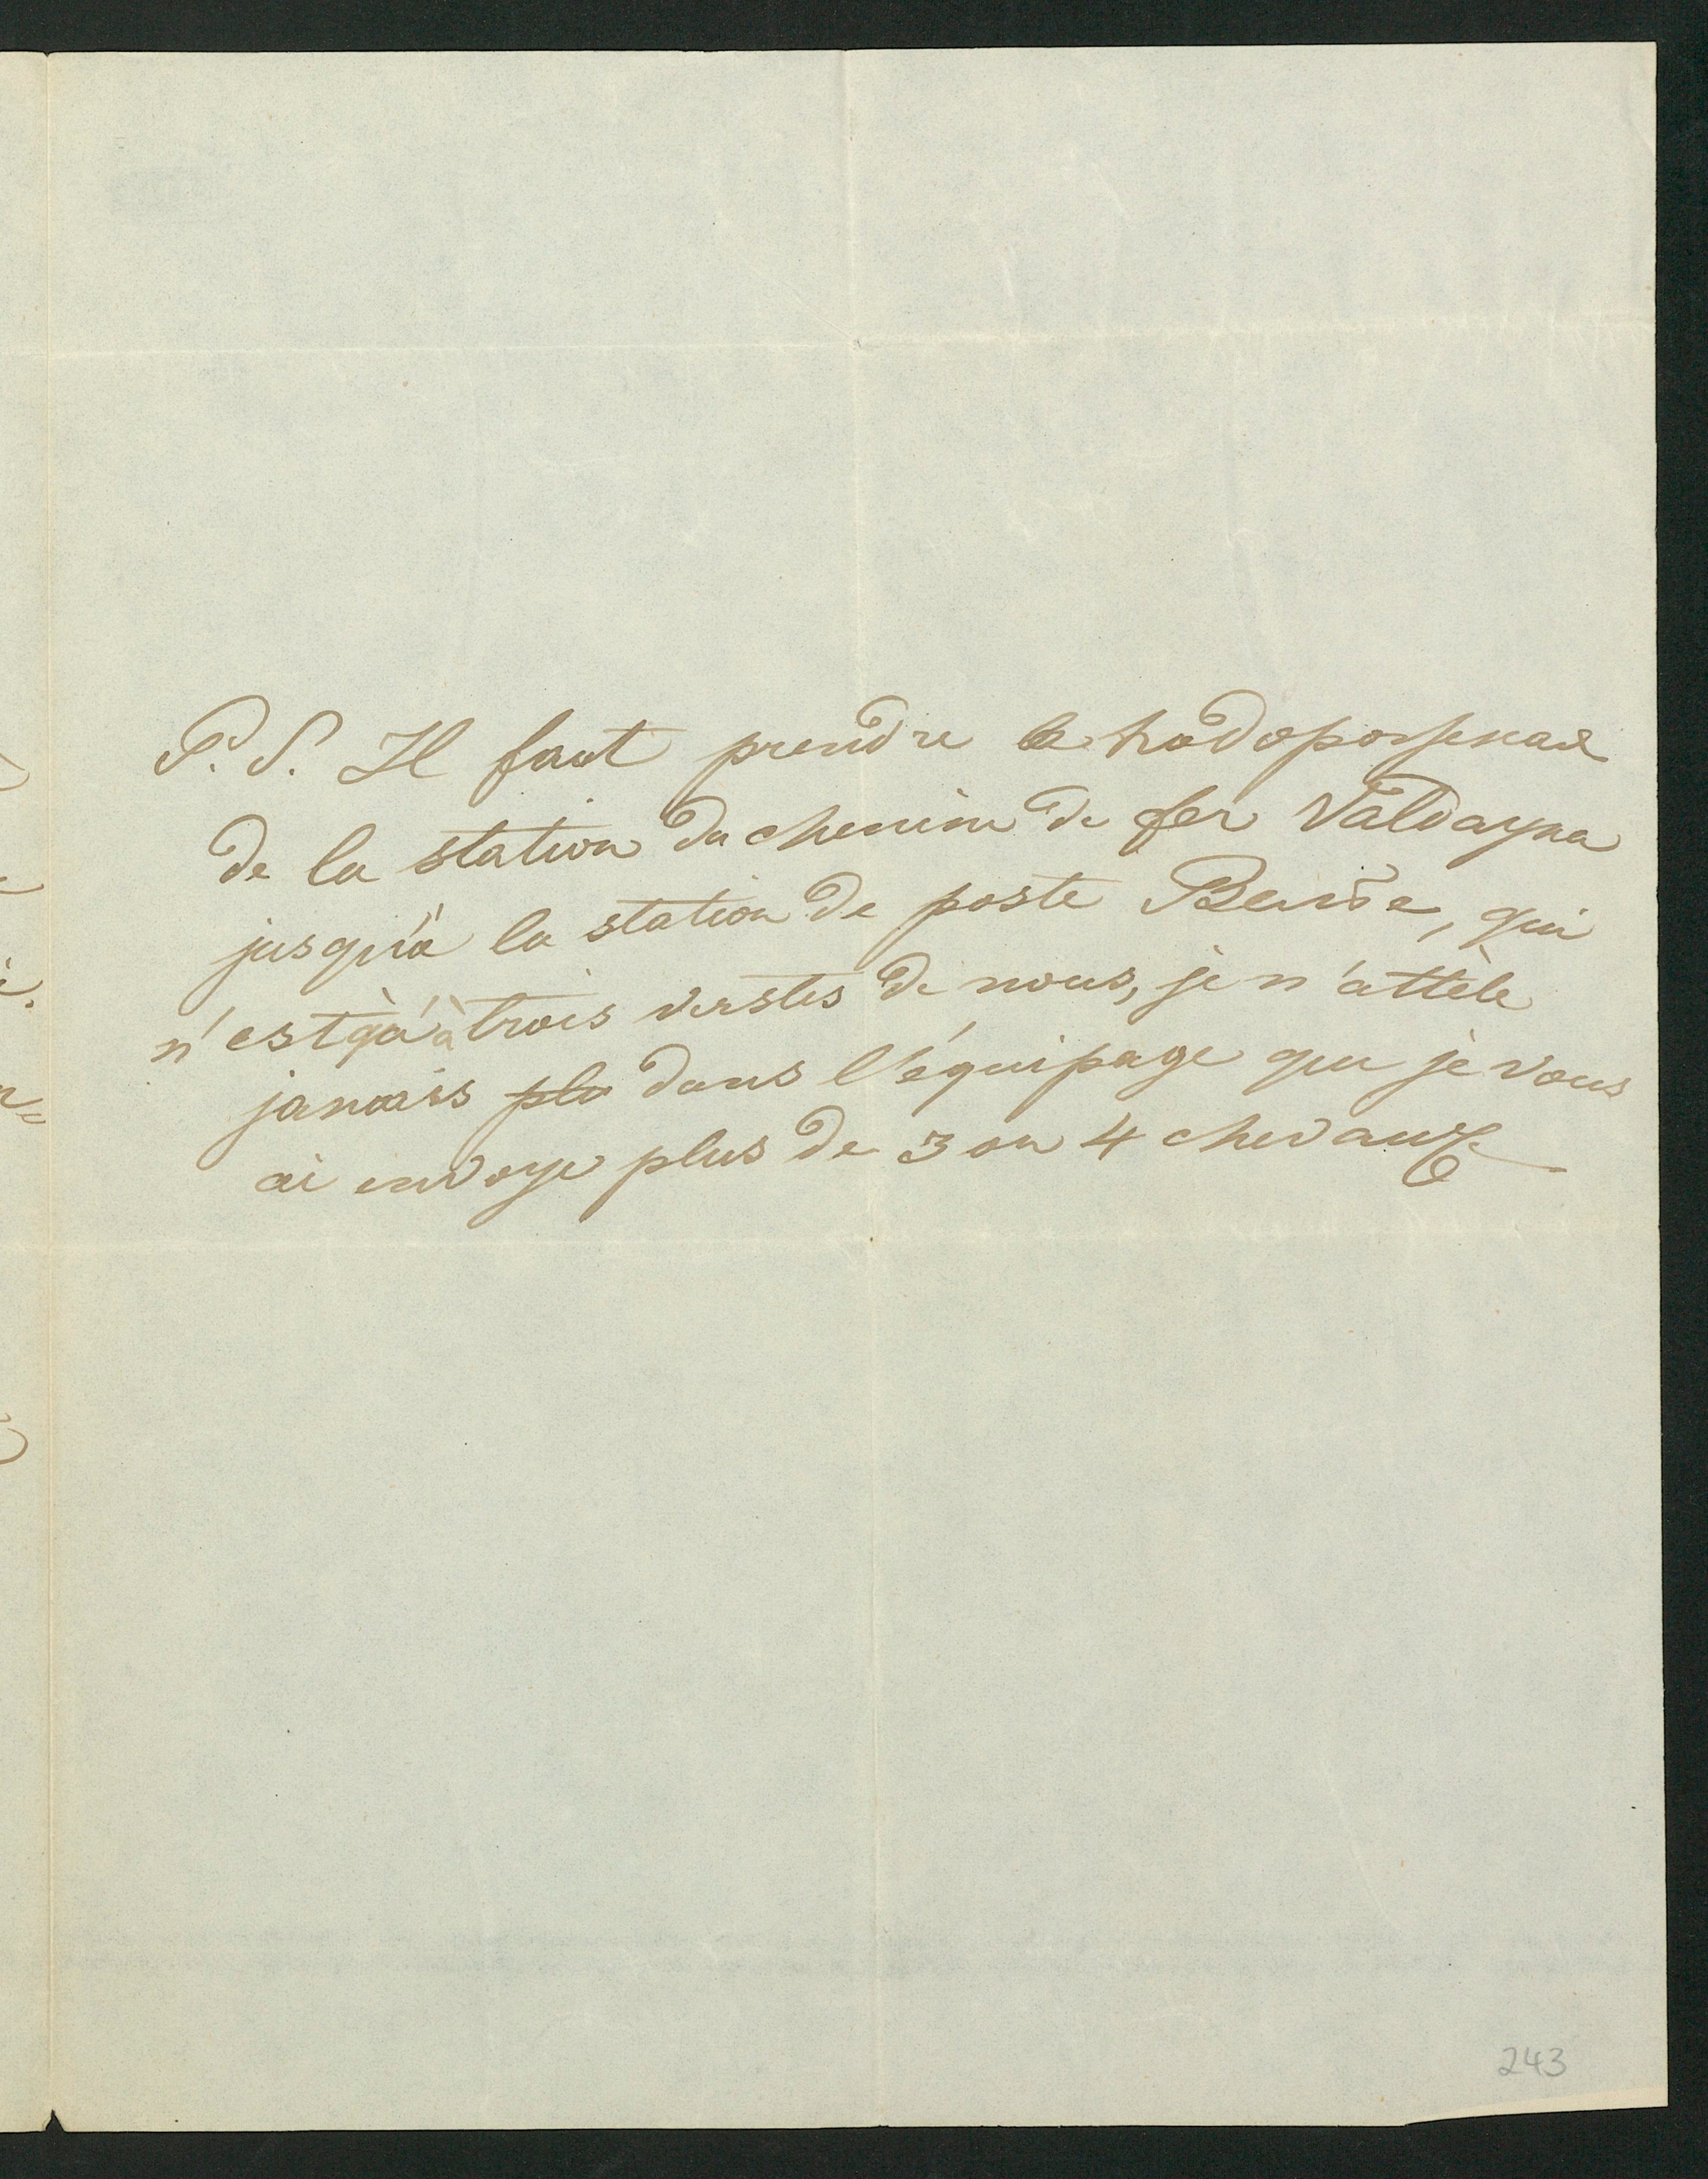 P. S. Il faut prendre le
de la station du chemin de fer Valdayka
jusqu'à la station de poste, qui
n'est qu'à trois verstes de nous, je n'attèle
jamais plu dans l'équipage que je vous
ai envoye plus de 3 ou 4 chevaux
243